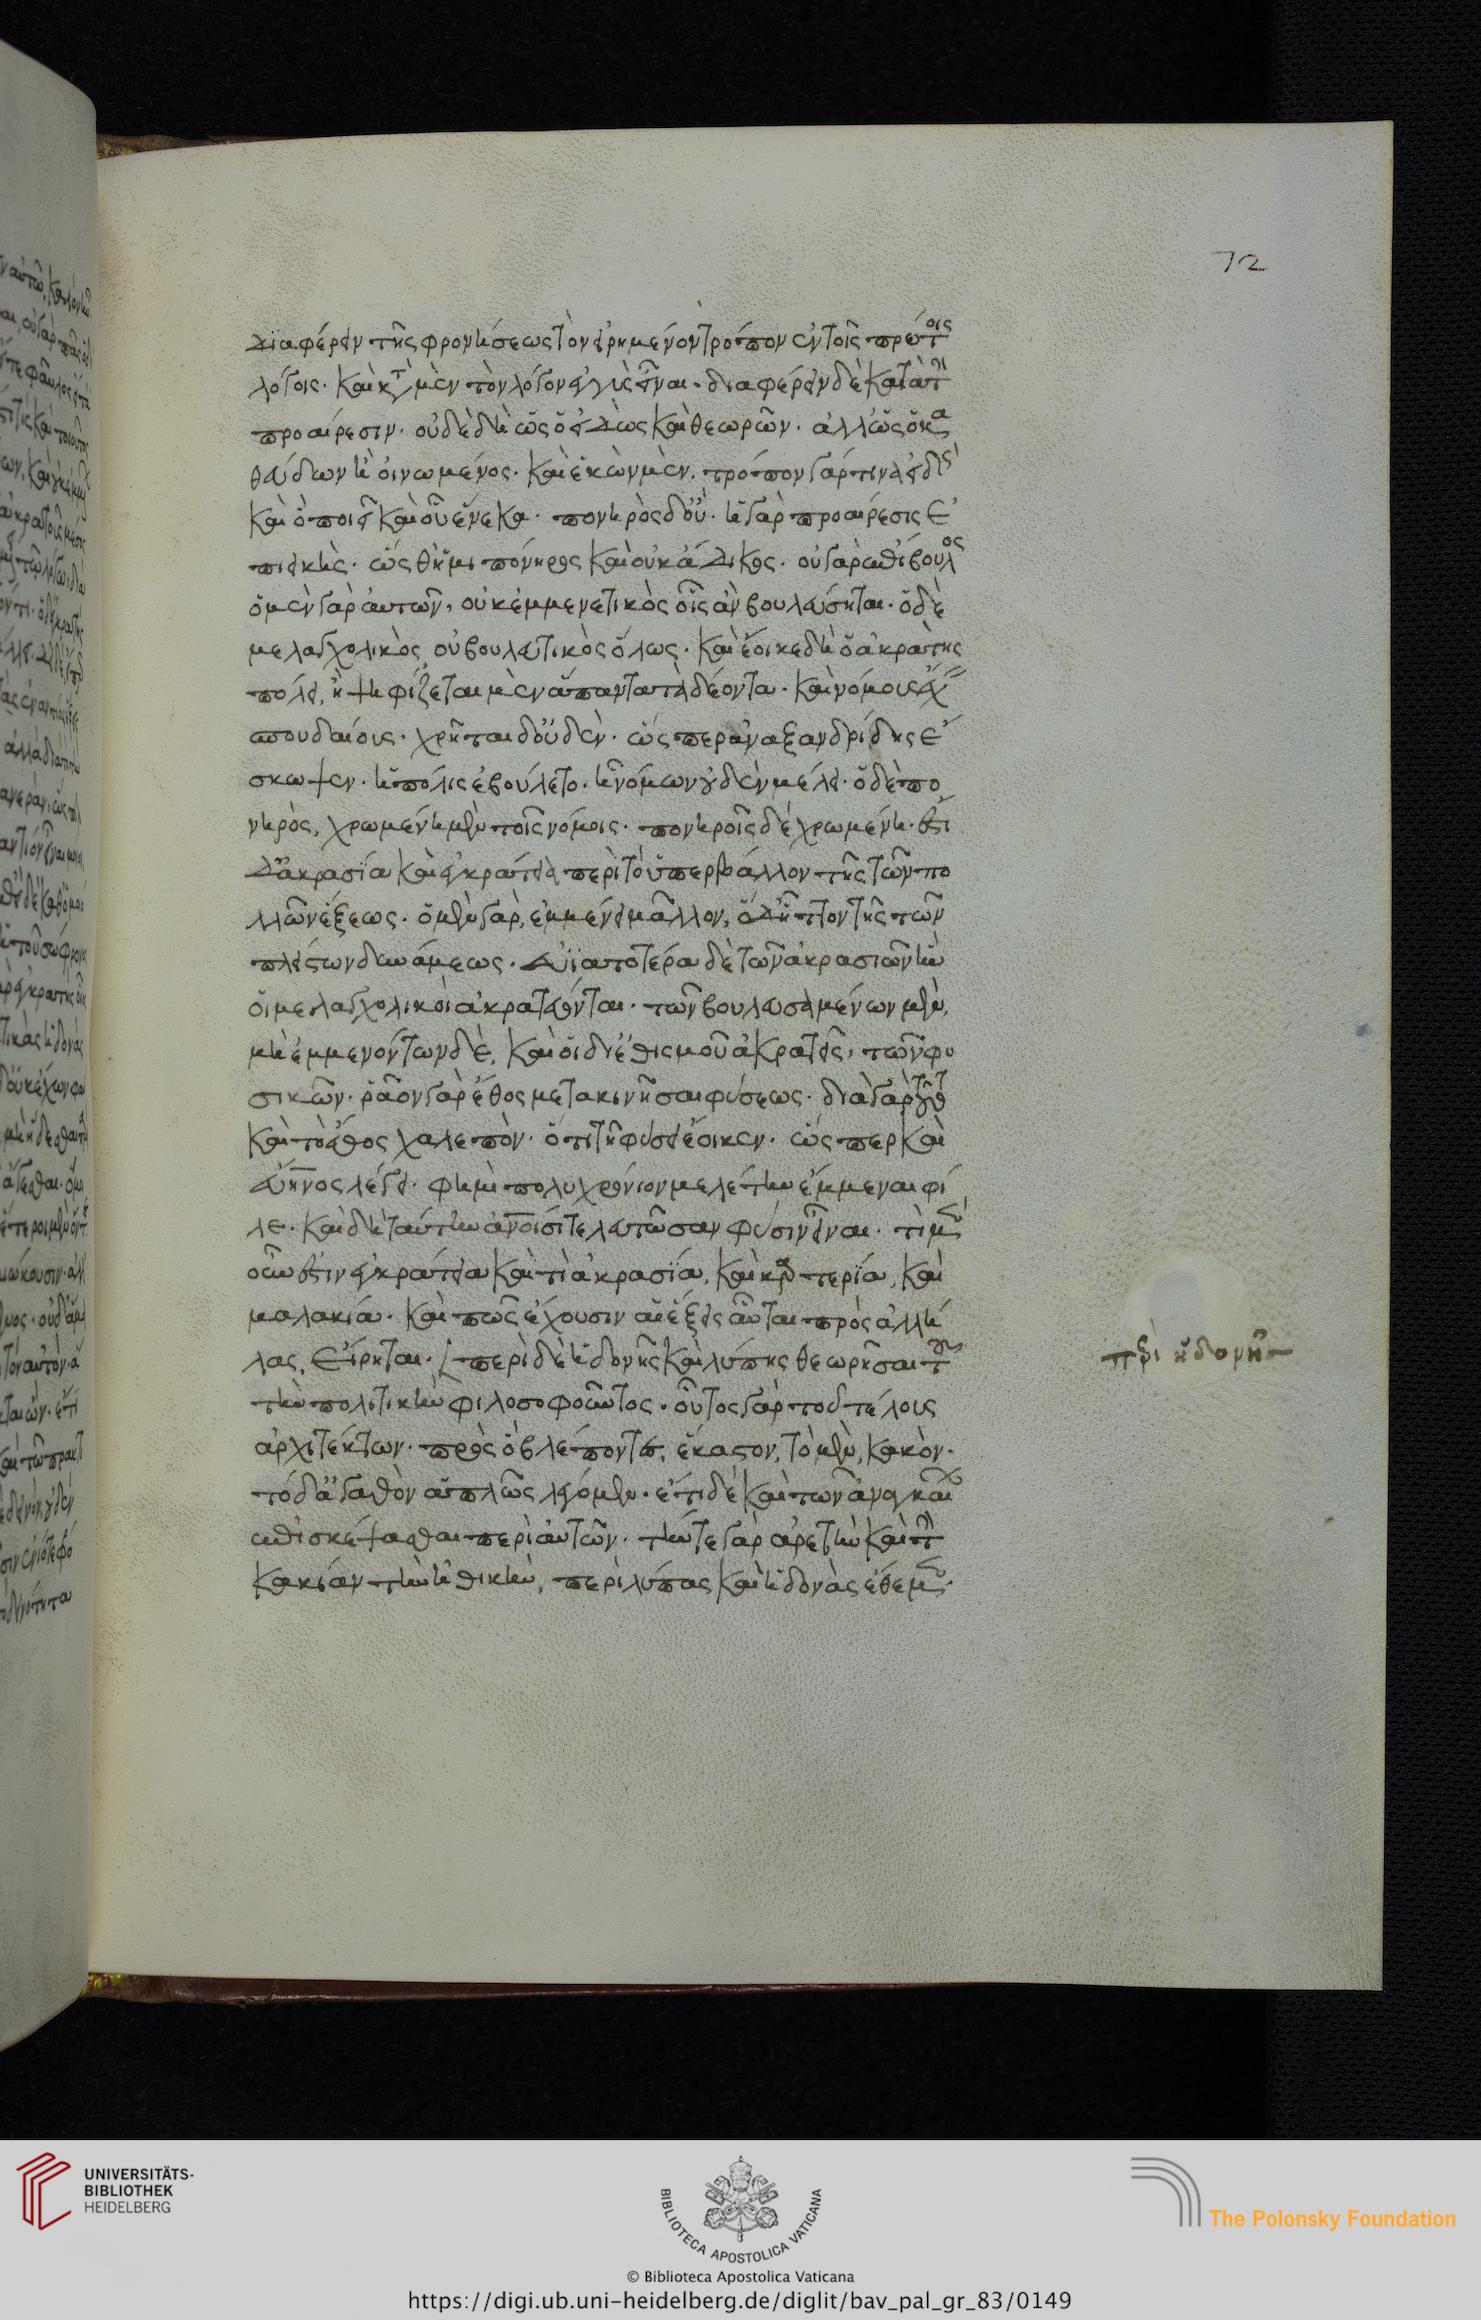 72
διαφέρειν τῆς φρονήσεως τὸν εἰρημένον τρόπον ἐν τοῖς πρώτοις
λόγοις. καὶ κατὰ μὲν τὸν λόγον ἐγγὺς εἶναι. διαφέρειν δὲ κατὰ τὴν
προαίρεσιν. οὐδὲ δὴ ὡς ὁ εἰδὼς καὶ θεωρῶν. ἀλλ' ὡς ὁ κα
θεύδων ἢ οἰνωμένος. καὶ ἑκὼν μὲν. τρόπον γάρ τινα εἰδὼς
καὶ ὃ ποιεῖ καὶ οὗ ἕνεκα. πονηρὸς δ' οὔ. ἡ γὰρ προαίρεσις ἐ
πιεικὴς. ὥσθ' ἡμιπόνηρος καὶ οὐκ ἄδικος. οὐ γὰρ ἐπίβουλος
ὁ μὲν γὰρ αὐτῶν, οὐκ ἐμμενετικὸς οἷς ἂν βουλεύσηται. ὁ δὲ
μελαγχολικὸς οὐ βουλευτικὸς ὅλως. καὶ ἔοικε δὴ ὁ ἀκρατὴς
πόλει, ἣ ψηφίζεται μὲν ἅπαντα τὰ δέοντα. καὶ νόμους ἔχει
σπουδαίους. χρῆται δ' οὐδέν. ὥσπερ ἀναξανδρίδης ἔ
σκωψεν. ἡ πόλις ἐβούλετο. ἣ νόμων οὐδὲν μέλει. ὁ δὲ πο
νηρὸς, χρωμένη μὲν τοῖς νόμοις. πονηροῖς δὲ χρωμένη. ἔστι
δ' ἀκρασία καὶ ἐγκράτεια περὶ τὸ ὑπερβάλλον τῆς τῶν πο
λλῶν ἕξεως. ὁ μὲν γὰρ, ἐμμένει μᾶλλον, ὁ δ' ἧττον τῆς τῶν
πλείστων δυνάμεως. εὐϊατοτέρα δὲ τῶν ἀκρασιῶν ἣν
οἱ μελαγχολικοὶ ἀκρατεύονται. τῶν βουλευσαμένων μὲν,
μὴ ἐμμενόντων δὲ, καὶ οἱ δι' ἐθισμοῦ ἀκρατεῖς, τῶν φυ
σικῶν. ῥᾷον γὰρ ἔθος μετακινῆσαι φύσεως. διὰ γὰρ τοῦτο
καὶ τὸ ἔθος χαλεπὸν. ὅτι τῇ φύσει ἔοικεν. ὥσπερ καὶ
εὔηνος λέγει. φημὶ πολυχρόνιον μελέτην ἔμμεναι φί
λε. καὶ δὴ ταύτην ἀνοισι τελευτῶσαν φύσιν εἶναι. τί μὲν
οὖν ἐστιν ἐγκράτεια καὶ τί ἀκρασία, καὶ καρτερία, καὶ
μαλακία. καὶ πῶς ἔχουσιν αἱ ἕξεις αὗται πρὸς ἀλλή
λας, εἴρηται. περὶ δὲ ἡδονῆς καὶ λύπης θεωρῆσαι τοῦ
τὴν πολιτικὴν φιλοσοφοῦντος. οὗτος γὰρ τοῦ τέλους
ἀρχιτέκτων. πρὸς ὃ βλέποντες, ἕκαστον, τὸ μὲν, κακὸν.
τὸ δ' ἀγαθὸν ἁπλῶς λέγομεν. ἔτι δὲ καὶ τῶν ἀναγκαίων
ἐπισκέψασθαι περὶ αὐτῶν. τήν τε γὰρ ἀρετὴν καὶ τὴν
κακίαν τὴν ἠθικὴν, περὶ λύπας καὶ ἡδονὰς ἔθεμεν.
περὶ ἡδονῆς
UNIVERSITÄTS-
BIBLIOTHEK
HEIDELBERG
BIBLIOTECA APOSTOLICA VATICANA
The Polonsky Foundation
© Biblioteca Apostolica Vaticana
https://digi.ub.uni-heidelberg.de/diglit/bav_pal_gr_83/0149